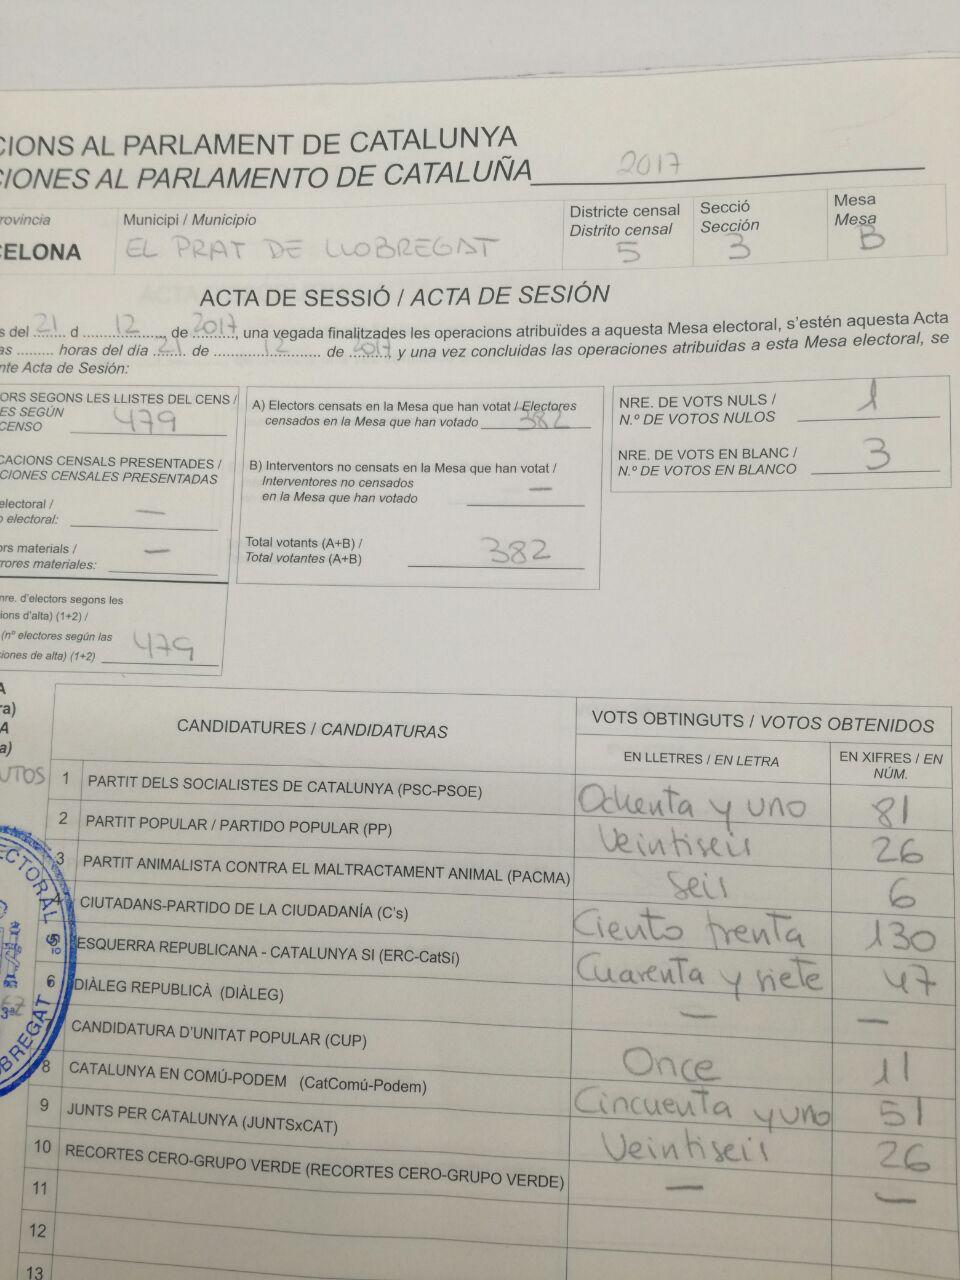 CIONS AL PARLAMENT DE CATALUNYA
CIONES AL PARLAMENTO DE CATALUÑA 2017
rovincia
CELONA
Municipi / Municipio
EL PRAT DE LLOBREGAT
Districte censal
Distrito censal
5
Secció
Sección
3
Mesa
Mesa
B
ACTA DE SESSIÓ / ACTA DE SESIÓN
s del 21 d 12 de 2017, una vegada finalitzades les operacions atribuïdes a aquesta Mesa electoral, s'estén aquesta Acta
as ......... horas del día 21 de 12 de 2017 y una vez concluidas las operaciones atribuidas a esta Mesa electoral, se
nte Acta de Sesión:
ORS SEGONS LES LLISTES DEL CENS /
ES SEGÚN
CENSO 479
CACIONS CENSALS PRESENTADES /
CIONES CENSALES PRESENTADAS
electoral /
o electoral: —
ors materials /
rrores materiales: —
nre. d'electors segons les
ions d'alta) (1+2) /
(nº electores según las
ciones de alta) (1+2) 479
A) Electors censats en la Mesa que han votat / Electores
censados en la Mesa que han votado 382
B) Interventors no censats en la Mesa que han votat /
Interventores no censados
en la Mesa que han votado —
Total votants (A+B) /
Total votantes (A+B) 382
NRE. DE VOTS NULS /
N.º DE VOTOS NULOS 1
NRE. DE VOTS EN BLANC /
N.º DE VOTOS EN BLANCO 3
A
ra)
A
a)
UTOS
CANDIDATURES / CANDIDATURAS
VOTS OBTINGUTS / VOTOS OBTENIDOS
EN LLETRES / EN LETRA
EN XIFRES / EN
NÚM.
1 PARTIT DELS SOCIALISTES DE CATALUNYA (PSC-PSOE) Ochenta y uno 81
2 PARTIT POPULAR / PARTIDO POPULAR (PP) Veintiseis 26
3 PARTIT ANIMALISTA CONTRA EL MALTRACTAMENT ANIMAL (PACMA) Seis 6
4 CIUTADANS-PARTIDO DE LA CIUDADANÍA (C's) Ciento trenta 130
5 ESQUERRA REPUBLICANA - CATALUNYA SI (ERC-CatSí) Cuarenta y siete 47
6 DIÀLEG REPUBLICÀ (DIÀLEG) — —
7 CANDIDATURA D'UNITAT POPULAR (CUP) Once 11
8 CATALUNYA EN COMÚ-PODEM (CatComú-Podem) Cincuenta y uno 51
9 JUNTS PER CATALUNYA (JUNTSxCAT) Veintiseis 26
10 RECORTES CERO-GRUPO VERDE (RECORTES CERO-GRUPO VERDE) — —
11
12
13
ECTORAL
5º
3ª
OBREGAT